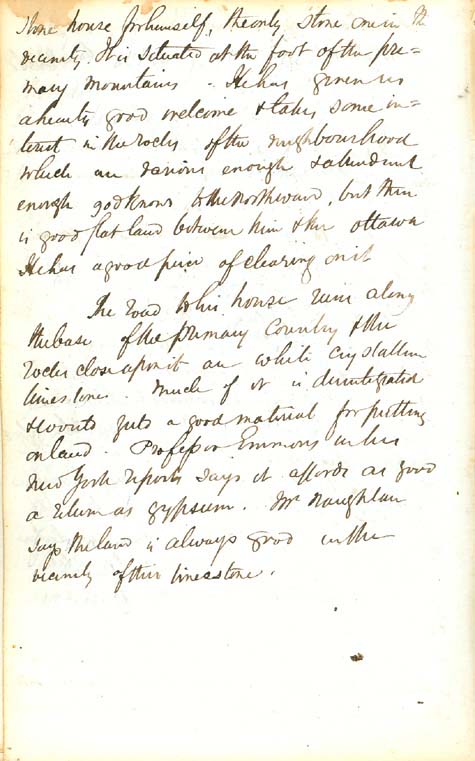 stone house for himself, the only stone one in the
vicinity. It is situated at the foot of the pri=
mary mountains. He has given us
a hearty good welcome & takes some in=
terest in the rocks of the neighbourhood
which are various enough & abundant
enough god knows to the northward, but there
is good flat land between him & the Ottawa
He has a good piece of clearing on it
The road to his house runs along
the base of the primary country & the
rocks close upon it are white crystalline
limestone. Much of it is disintegrated
& would  a good material for putting
on land. Professor Emmons in his
New York reports says it affords as good
a  as gypsum. Mr
says the land is always good in the
vicinity of this limestone.